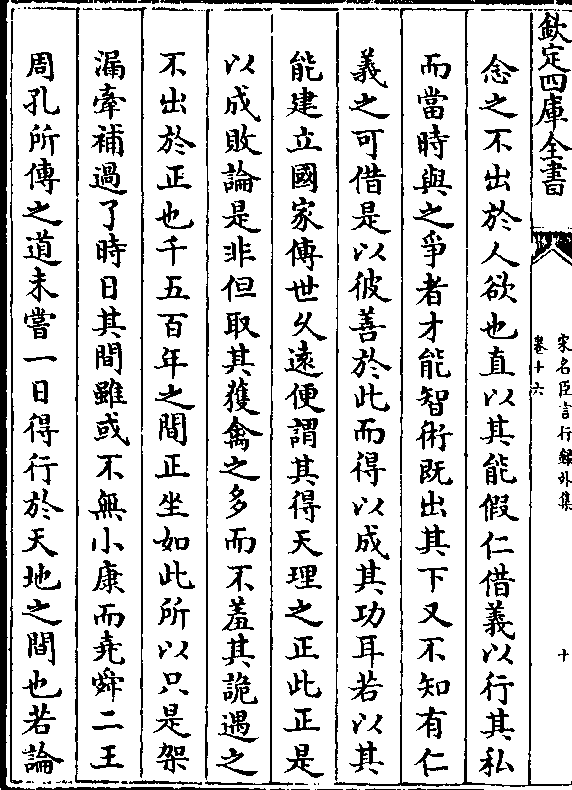 欽定四庫全書
宋名臣言行錄外集
卷十六
十
念之不出於人欲也直以其能假仁借義以行其私
而當時與之爭者才能智術既出其下又不知有仁
義之可借是以彼善於此而得以成其功耳若以其
能建立國家傳世久遠便謂其得天理之正此正是
以成敗論是非但取其獲禽之多而不羞其詭遇之
不出於正也千五百年之間正坐如此所以只是架
漏牽補過了時日其間雖或不無小康而堯舜二王
周孔所傳之道未嘗一日得行於天地之間也若論